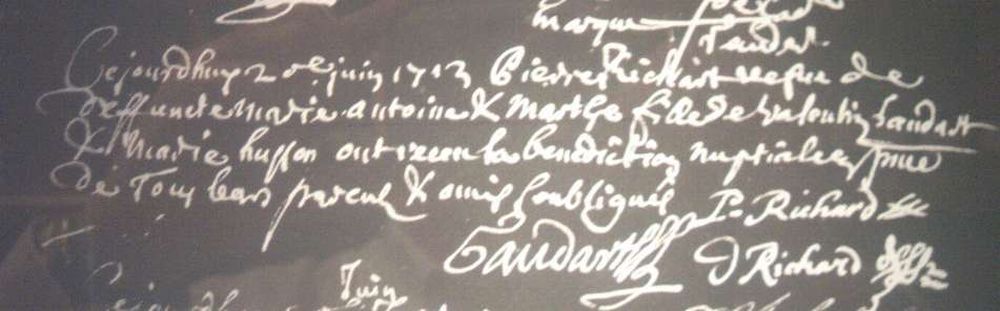 marque
Cejourdhuy 2 de juin 1713 Pierre Richart veefue de
deffuncte marie antoine & marthe fille de valentin Gaudart
& Marie husson ont receu la benediction nuptialle
de Tous leurs parens & amis soubsignés P. Richard
Gaudart D Richard
Juin